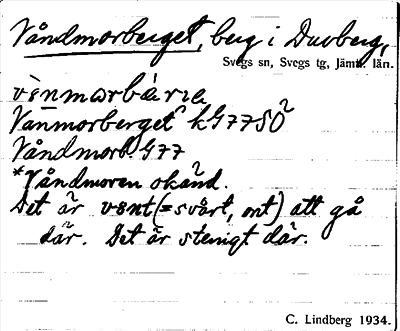 Våndmorberget, berg i Duvberg,
Svegs sn, Svegs tg, Jämtl. län.
Vånmorberget k G77SÖ
Våndmorb. G77
*Våndmoren okänd.
Det är vont (= svårt, ont) att gå
där. Det är stenigt där.
C. Lindberg 1934.